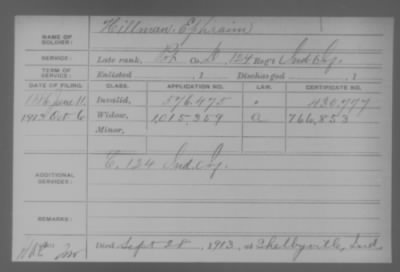 NAME OF SOLDIER: Hillman, Ephraim
SERVICE: Late rank, Pvt Co. 124 Reg't Ind. Inf.
TERM OF SERVICE: Enlisted , 1 Discharged , 1
DATE OF FILING. CLASS. APPLICATION NO. LAW. CERTIFICATE NO.
1886 June 11 Invalid, 576.475 " 430.777
1913 Oct 6 Widow, 1,015,359 a 766,853
Minor,
ADDITIONAL SERVICES: 124 Ind. Inf.
REMARKS:
Died Sept 28, 1913, at Shelbyville, Ind.